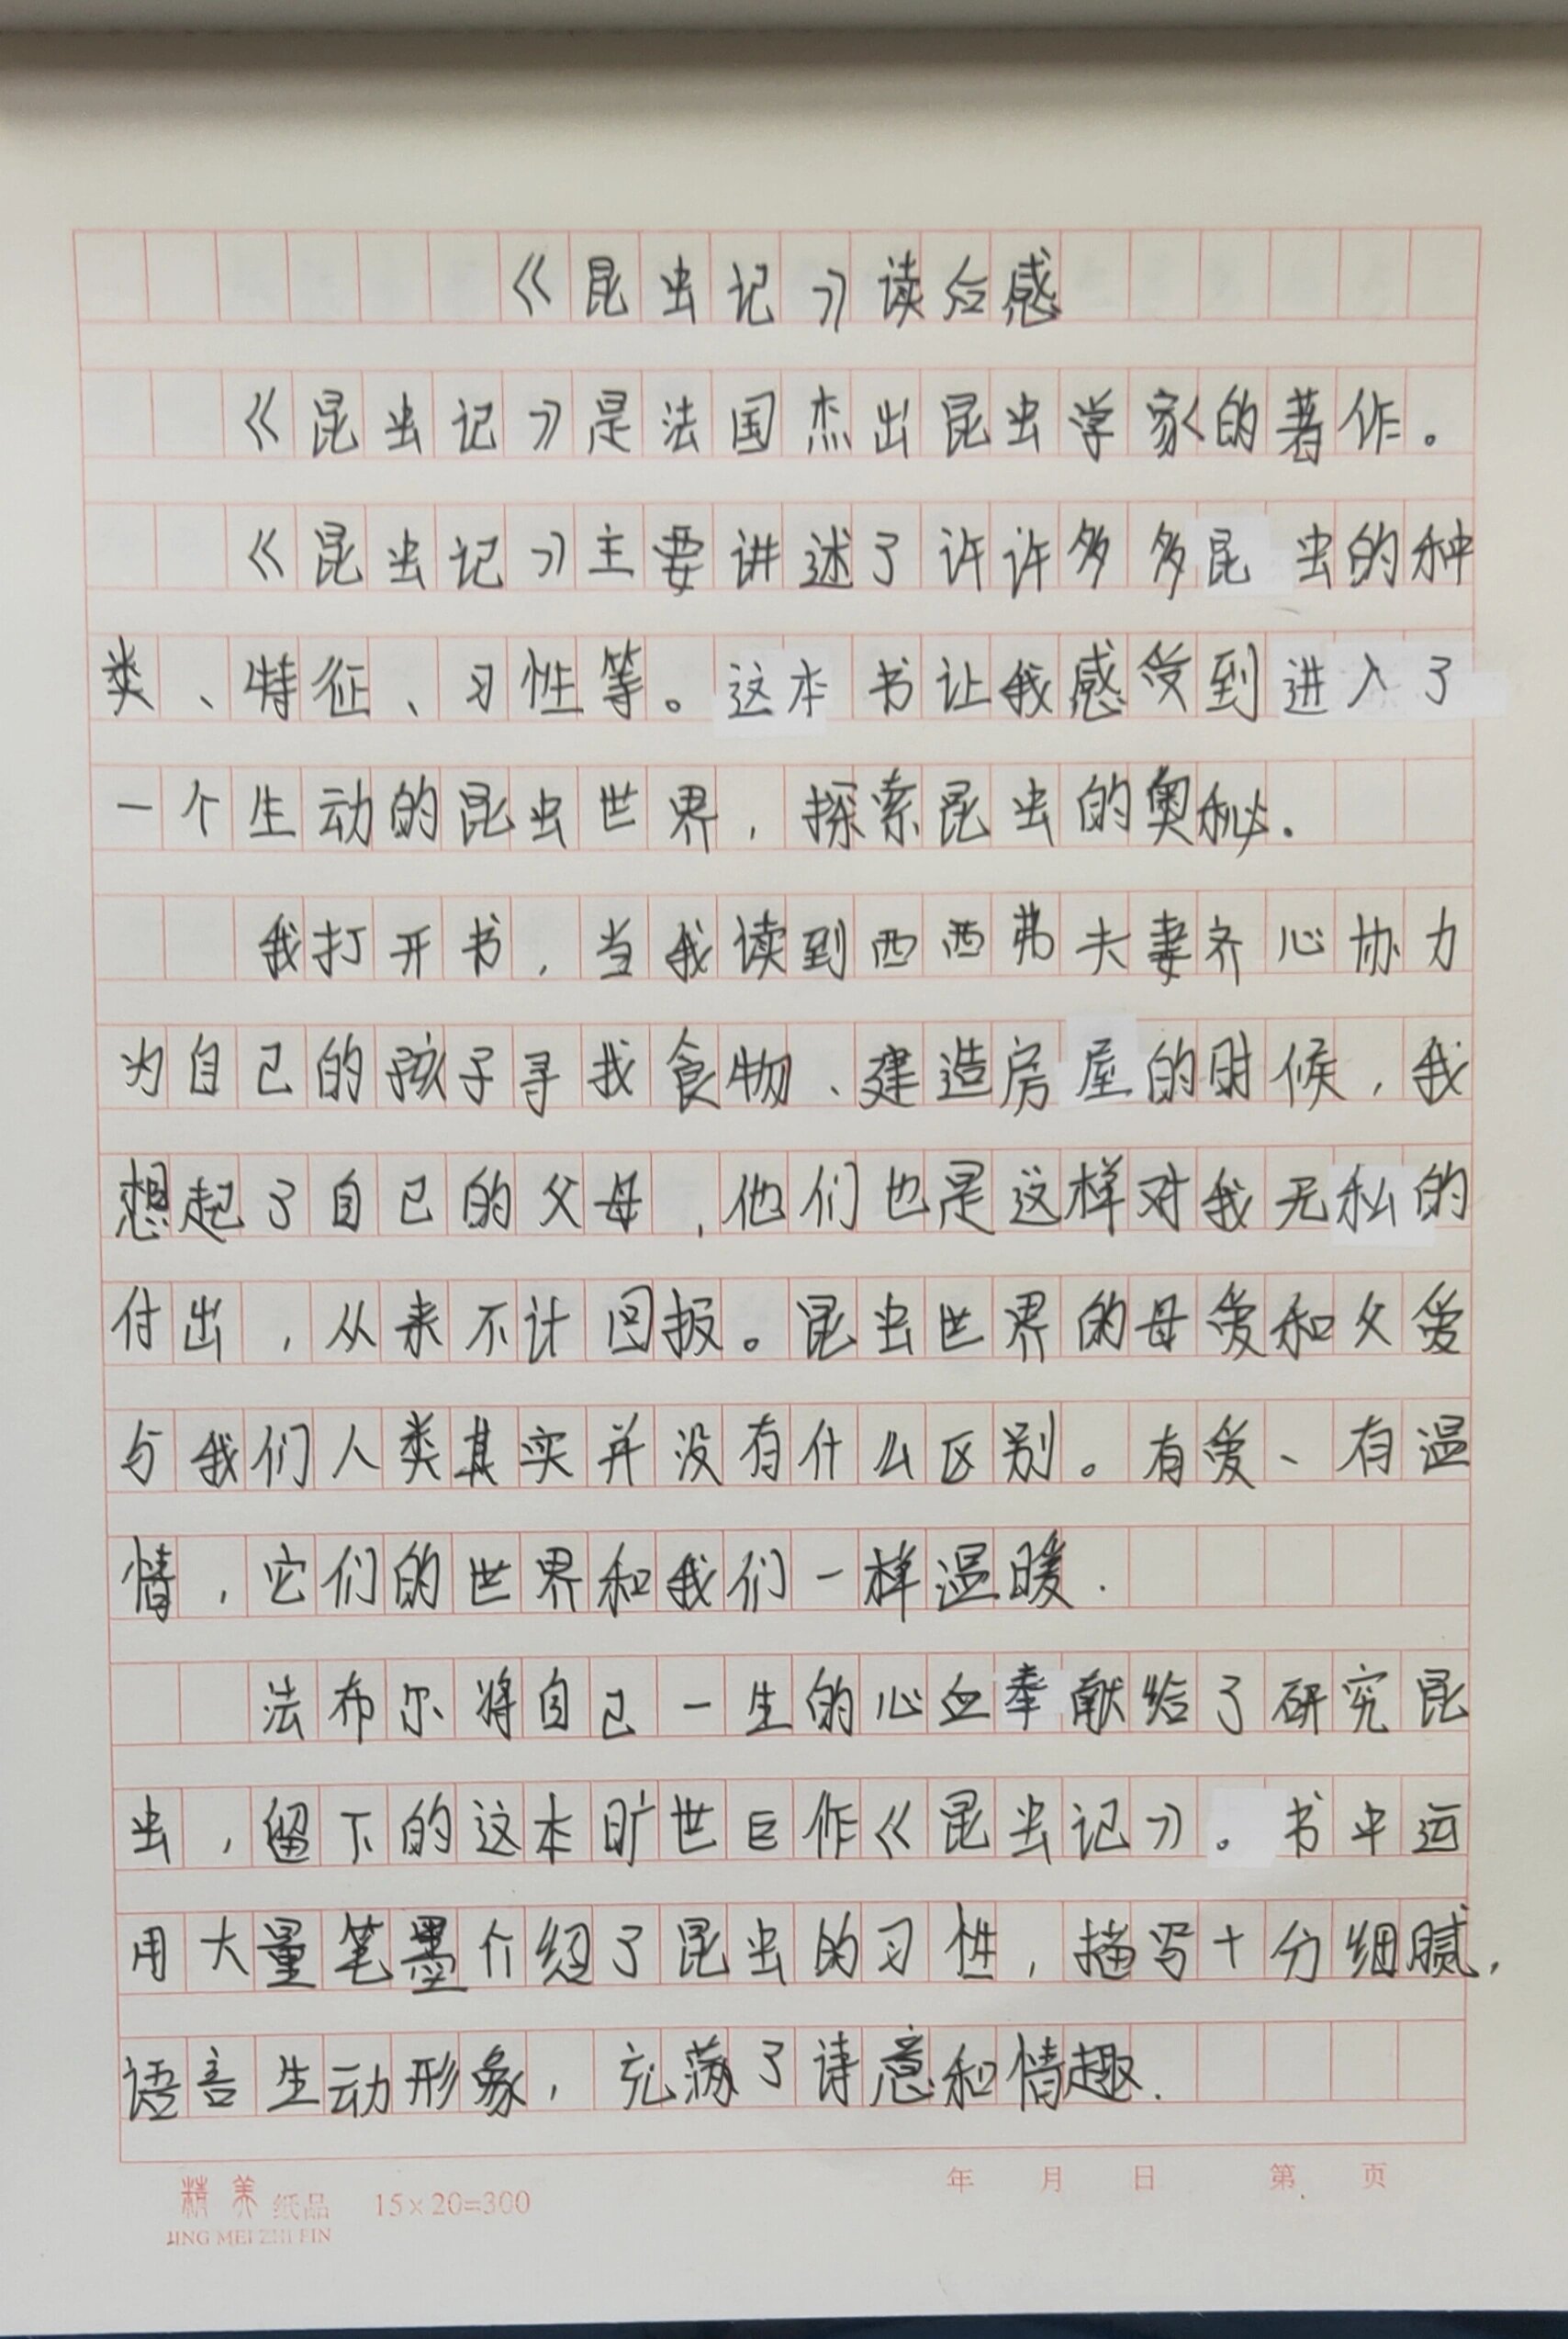 《昆虫记》读后感
《昆虫记》是法国杰出昆虫学家的著作。
《昆虫记》主要讲述了许许多多昆虫的种
类、特征、习性等。这本书让我感受到进入了
一个生动的昆虫世界，探索昆虫的奥秘.
我打开书，当我读到西西弗夫妻齐心协力
为自己的孩子寻找食物、建造房屋的时候，我
想起了自己的父母，他们也是这样对我无私的
付出，从来不计回报。昆虫世界的母爱和父爱
与我们人类其实并没有什么区别。有爱、有温
情，它们的世界和我们一样温暖.
法布尔将自己一生的心血奉献给了研究昆
虫，留下的这本旷世巨作《昆虫记》。书中运
用大量笔墨介绍了昆虫的习性，描写十分细腻，
语言生动形象，充满了诗意和情趣.
精美纸品 15×20=300 年 月 日 第 页
JING MEI ZHI PIN